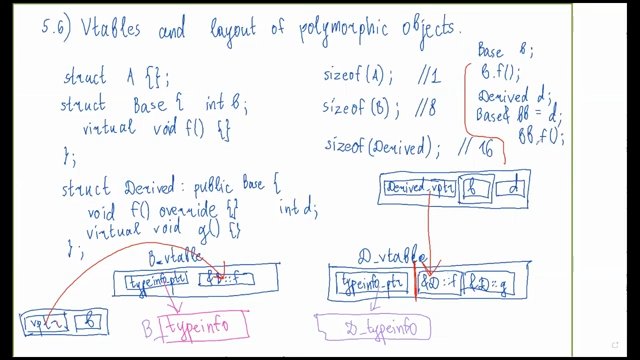 5.6) Vtables and layout of polymorphic objects.
struct A {};
struct Base { int b;
virtual void f() {}
};
struct Derived : public Base {
void f() override {} int d;
virtual void g() {}
};
sizeof(A); //1
sizeof(B); //8
sizeof(Derived); // 16
Base b;
b.f();
Derived d;
Base& bb = d;
bb.f();
Derived_vptr b d
B_vtable
typeinfo_ptr &D::f
vptr b
B_typeinfo
D_vtable
typeinfo_ptr &D::f &D::g
D_typeinfo